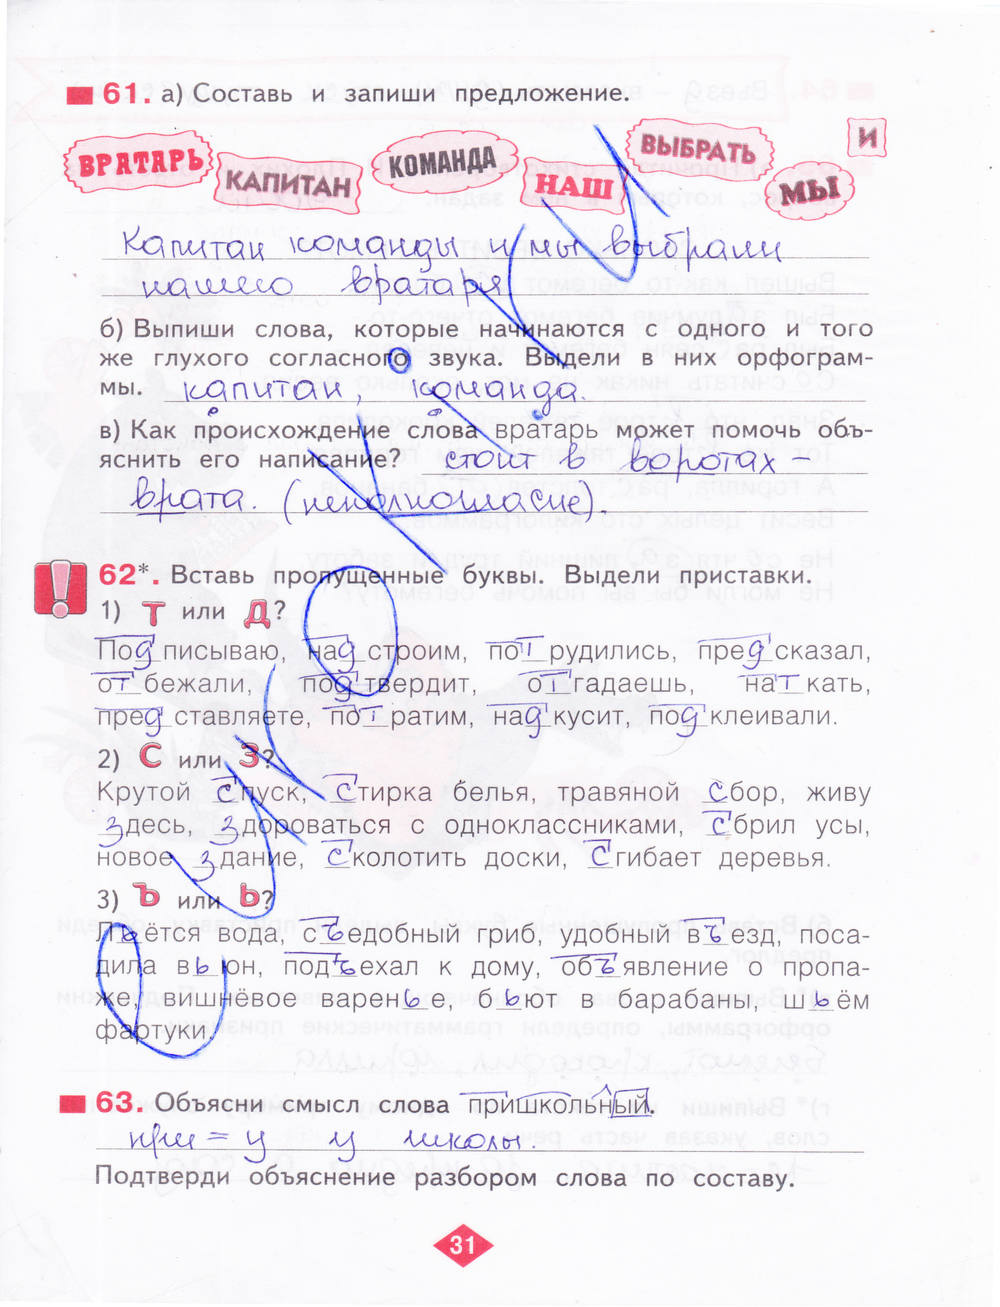 61. а) Составь и запиши предложение.
ВРАТАРЬ КАПИТАН КОМАНДА НАШ ВЫБРАТЬ МЫ И
Капитан команды и мы выбрали
нашего вратаря
б) Выпиши слова, которые начинаются с одного и того
же глухого согласного звука. Выдели в них орфограм-
мы. капитан, команда.
в) Как происхождение слова вратарь может помочь объ-
яснить его написание? стоит в воротах –
врата. (неполногласие).
62*. Вставь пропущенные буквы. Выдели приставки.
1) Т или Д?
Подписываю, надстроим, потрудились, предсказал,
отбежали, подтвердит, отгадаешь, наткать,
представляете, потратим, надкусит, подклеивали.
2) С или З?
Крутой спуск, стирка белья, травяной сбор, живу
здесь, здороваться с одноклассниками, сбрил усы,
новое здание, сколотить доски, сгибает деревья.
3) Ъ или Ь?
Льётся вода, съедобный гриб, удобный въезд, поса-
дила вьюн, подъехал к дому, объявление о пропа-
же, вишнёвое варенье, бьют в барабаны, шьём
фартуки.
63. Объясни смысл слова пришкольный.
при = у у школы.
Подтверди объяснение разбором слова по составу.
31